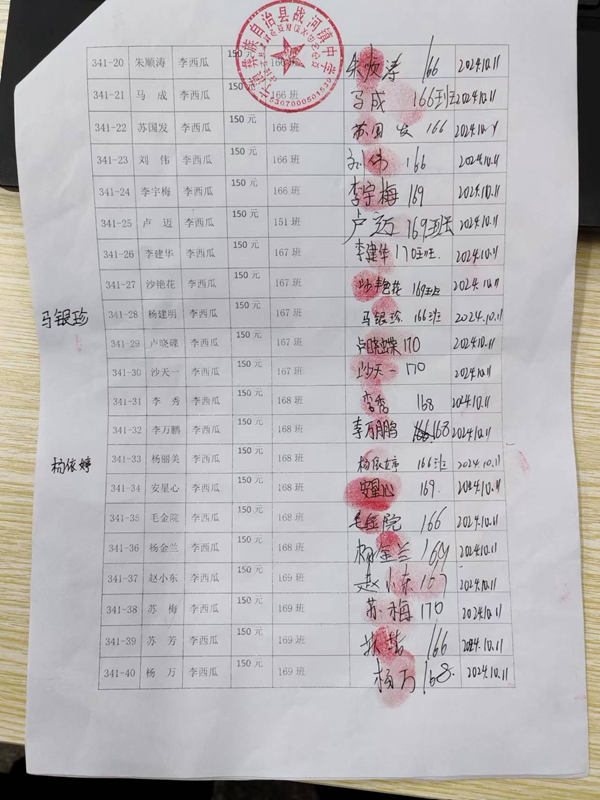 族自治县战河镇中学
5307000501539
341-20 朱顺涛 李西瓜 150元 166班 朱顺涛 166 2024.10.11
341-21 马 成 李西瓜 150元 166班 马成 166班 2024.10.11
341-22 苏国发 李西瓜 150元 166班 苏国发 166 2024.10.11
341-23 刘 伟 李西瓜 150元 166班 刘伟 166 2024.10.11
341-24 李宇梅 李西瓜 150元 166班 李宇梅 169 2024.10.11
341-25 卢 迈 李西瓜 150元 151班 卢迈 169班 2024.10.11
341-26 李建华 李西瓜 150元 167班 李建华 170班. 2024.10.11
341-27 沙艳花 李西瓜 150元 167班 沙艳花 169班 2024.10.11
马银珍 341-28 杨建明 李西瓜 150元 167班 马银珍 166班 2024.10.11
341-29 卢晓碟 李西瓜 150元 167班 卢晓蝶 170 2024.10.11
341-30 沙天一 李西瓜 150元 167班 沙天一 170 2024.10.11
341-31 李 秀 李西瓜 150元 168班 李秀 168 2024.10.11
341-32 李万鹏 李西瓜 150元 168班 李万鹏 168 2024.10.11
杨依婷 341-33 杨丽美 李西瓜 150元 168班 杨依婷 166班 2024.10.11
341-34 安星心 李西瓜 150元 168班 安星心 169. 2024.10.11
341-35 毛金院 李西瓜 150元 168班 毛金院 166 2024.10.11
341-36 杨金兰 李西瓜 150元 168班 杨金兰 169 2024.10.11
341-37 赵小东 李西瓜 150元 169班 赵小东 167 2024.10.11
341-38 苏 梅 李西瓜 150元 169班 苏梅 170 2024.10.11
341-39 苏 芳 李西瓜 150元 169班 166 2024.10.11
341-40 杨 万 李西瓜 150元 169班 杨万 168. 2024.10.11